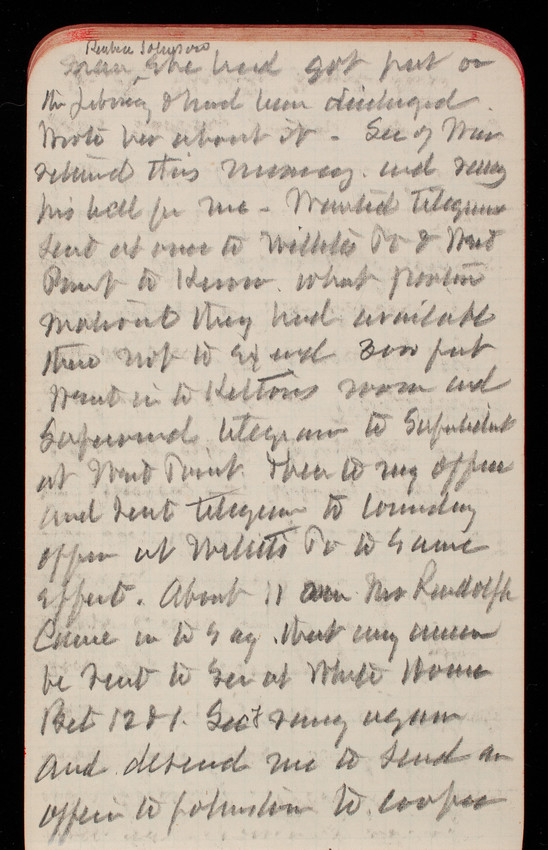 Reuben Johnson
man, she had got put on
the Library & had been discharged.
Wrote her about it - Sec of War
returned this morning. and rang
his bell for me - Wanted telegrams
sent at once to Willets Pt & West
Point to know what pontoon
material they had available
there not to exceed 300 feet
Went in to Keltons room and
telegram to Supndent
at West Point. Then to my office
and sent telegram to comndng
officer at Willets Pt to same
effect. About 11 Mr Rudolph
Came in to say that any
be sent to at White House
Bet 12 & 1. Sect rang again
and desired me to send an
officer to Johnston to